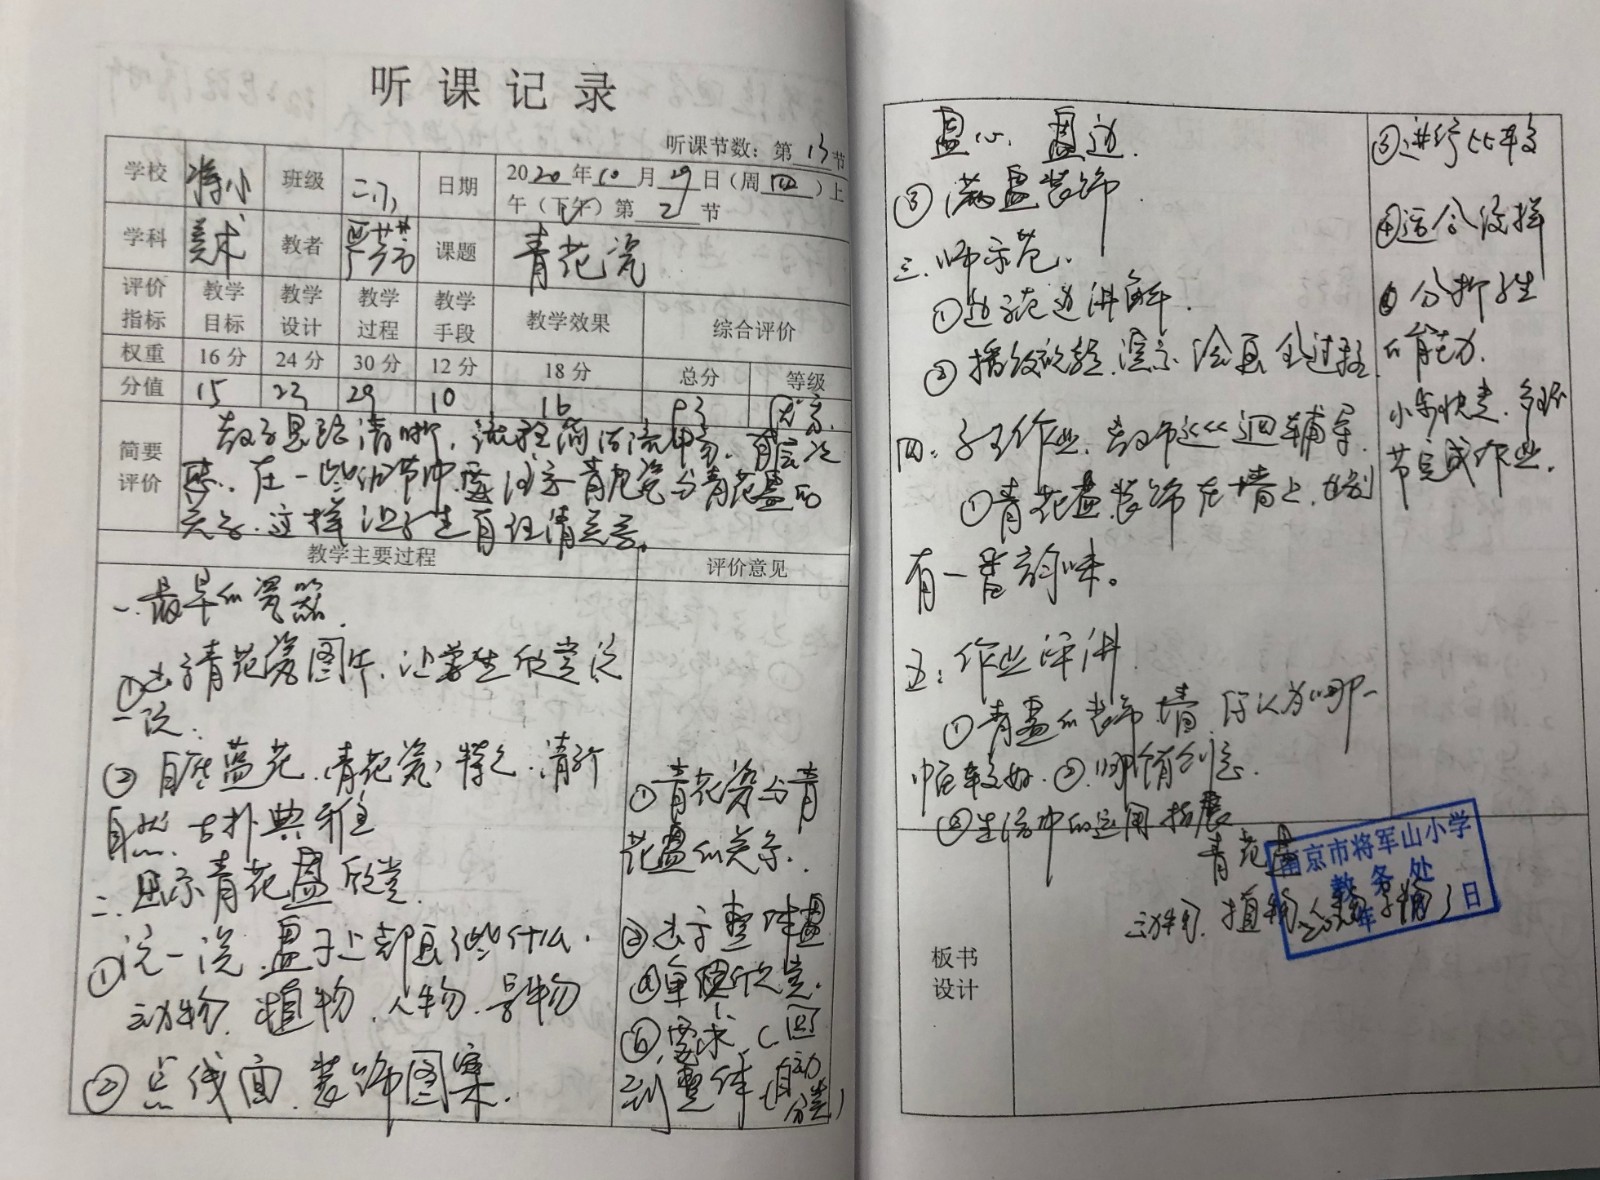 听课记录
听课节数：第 13 节
学校 将小 班级 二、1 日期 2020年10月29日（周四）上
午（下午）第 2 节
学科 美术 教者 严芳 课题 青花瓷
评价 教学 教学 教学 教学 教学效果 综合评价
指标 目标 设计 过程 手段
权重 16分 24分 30分 12分 18分 总分 等级
分值 15 23 29 10 16 93
简要 教学思路清晰，流程简洁流畅，有层次
评价 在一些细节中要注意青花瓷与青花盘的
关系，这样让学生
教学主要过程 评价意见
一、最早的瓷器
①出示青花瓷图片，让学生欣赏说
一说。
② 白底蓝花，青花瓷，特色，清新
自然、古朴典雅
二、出示青花盘欣赏
①说一说，盘子上都画了些什么，
动物、植物、人物、景物
② 点线面、装饰图案。
①青花瓷与青
花盘的关系。
②出示整体盘
单独欣赏。
要求，回
到整体（自动
分类）
盘心、盘边。
③ 满盘装饰
三、师示范。
①边示范边讲解。
② 播放视频，演示绘画全过程
四、学生作业，教师巡回辅导。
①青花盘装饰在墙上，特别
有一番韵味。
五、作业评讲
①青盘的装饰墙，你认为哪一
幅较好，②哪个有创意
③生活中的运用拓展
③进行比较
分析学生
的能力。
小步快走，多环
节完成作业。
板书
设计
青花盘
动物、植物、人物、景物
南京市将军山小学
教务处
年 月 日